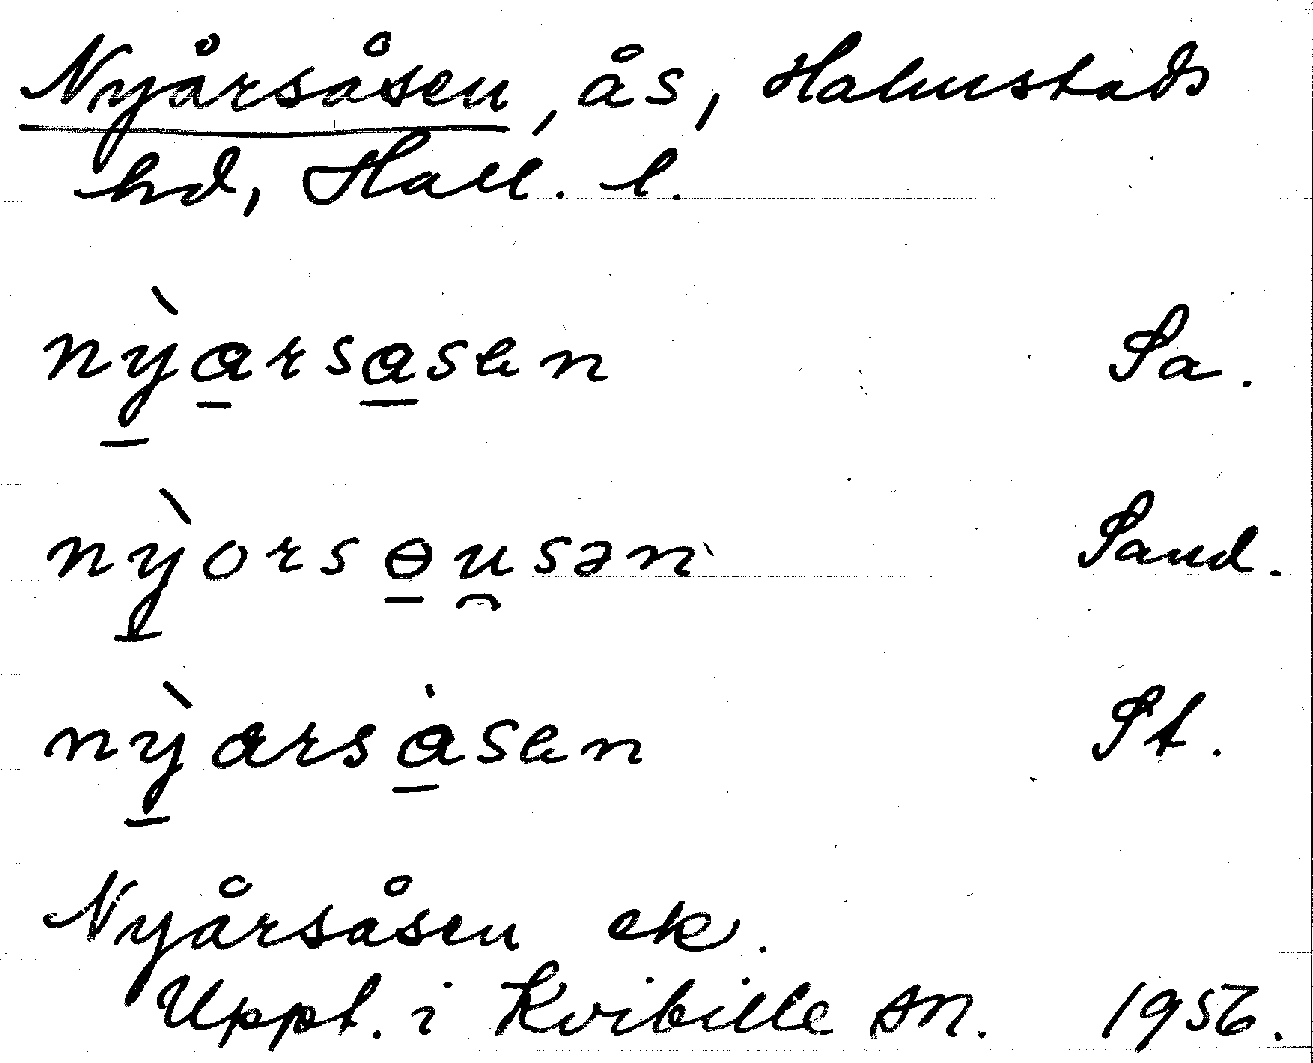 Nyårsåsen, ås, Halmstads
hd, Hall. l.
nỳa̲rsa̲sen Sa.
nỳorsɵ̲u̯sən Sand.
nỳarsȧ̲sen St.
Nyårsåsen ek.
Uppt. i Kvibille sn. 1956.